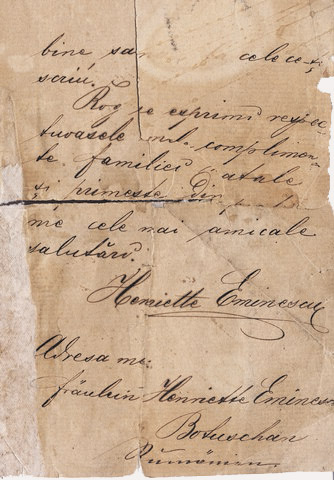 bine sa cele ce-ți
scriŭ.
Rog se esprimĭ respec-
tuoasele mele complimen-
te familiei D-tale
și primește din
me cele mai amicale
salutărĭ.
Henriette Eminescu
Adresa mea:
fräulein Henriette Eminesc
Botuschan
Rumänien